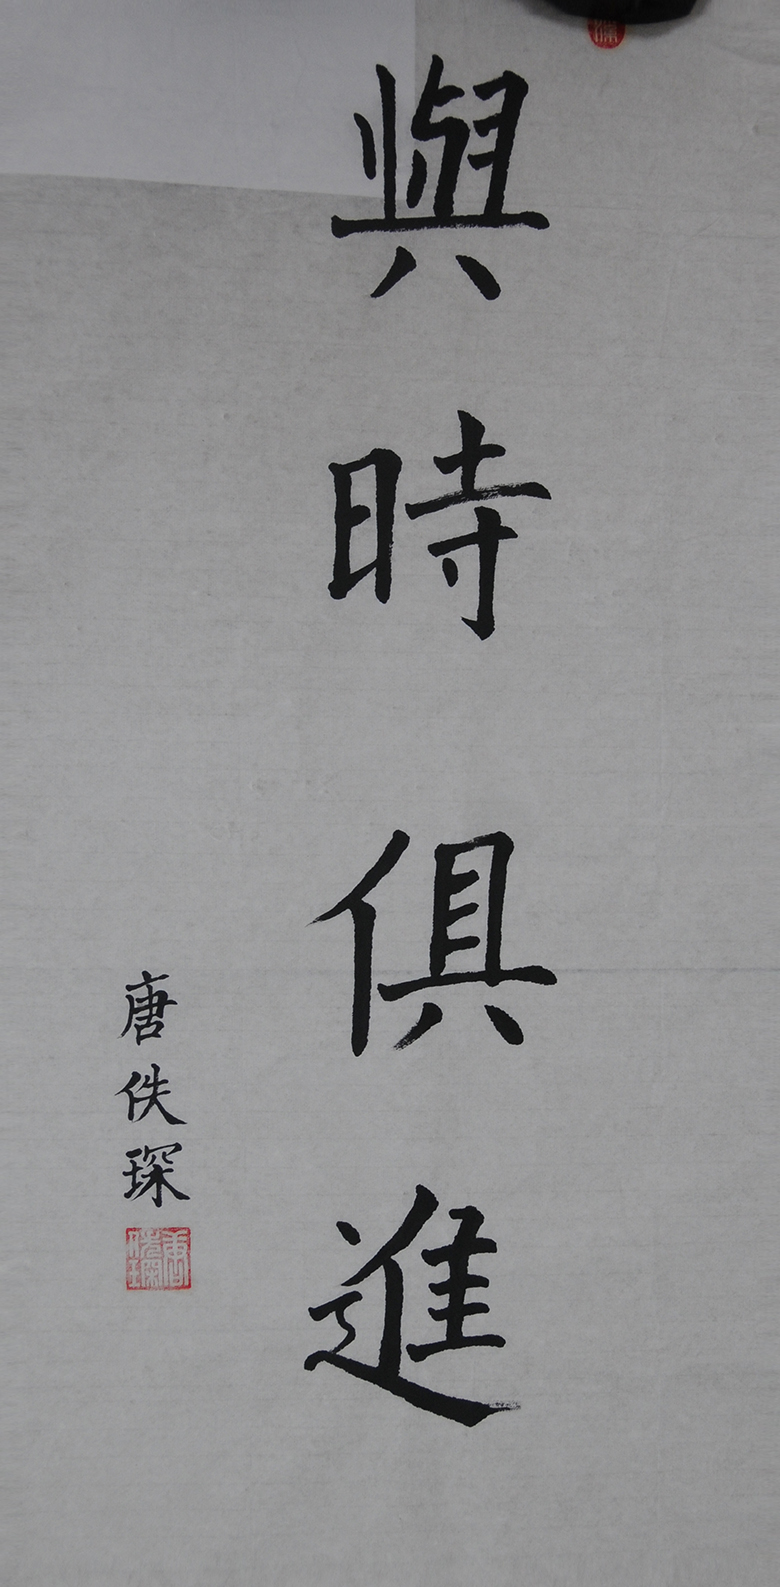 與時俱進
唐佚琛